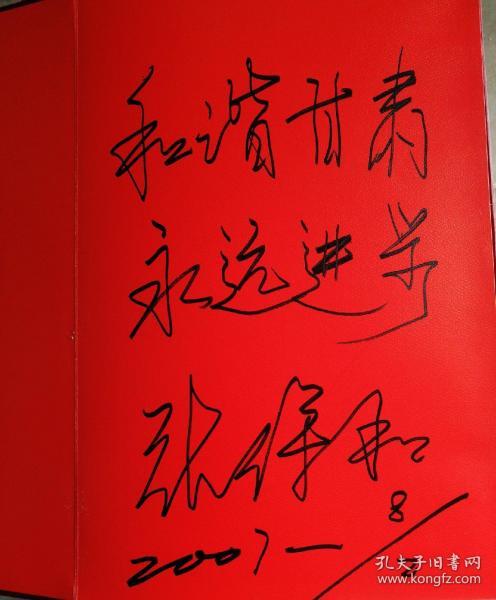 和谐甘肃
永远进步
张保和
2007-8/
孔夫子旧书网
www.kongfz.com